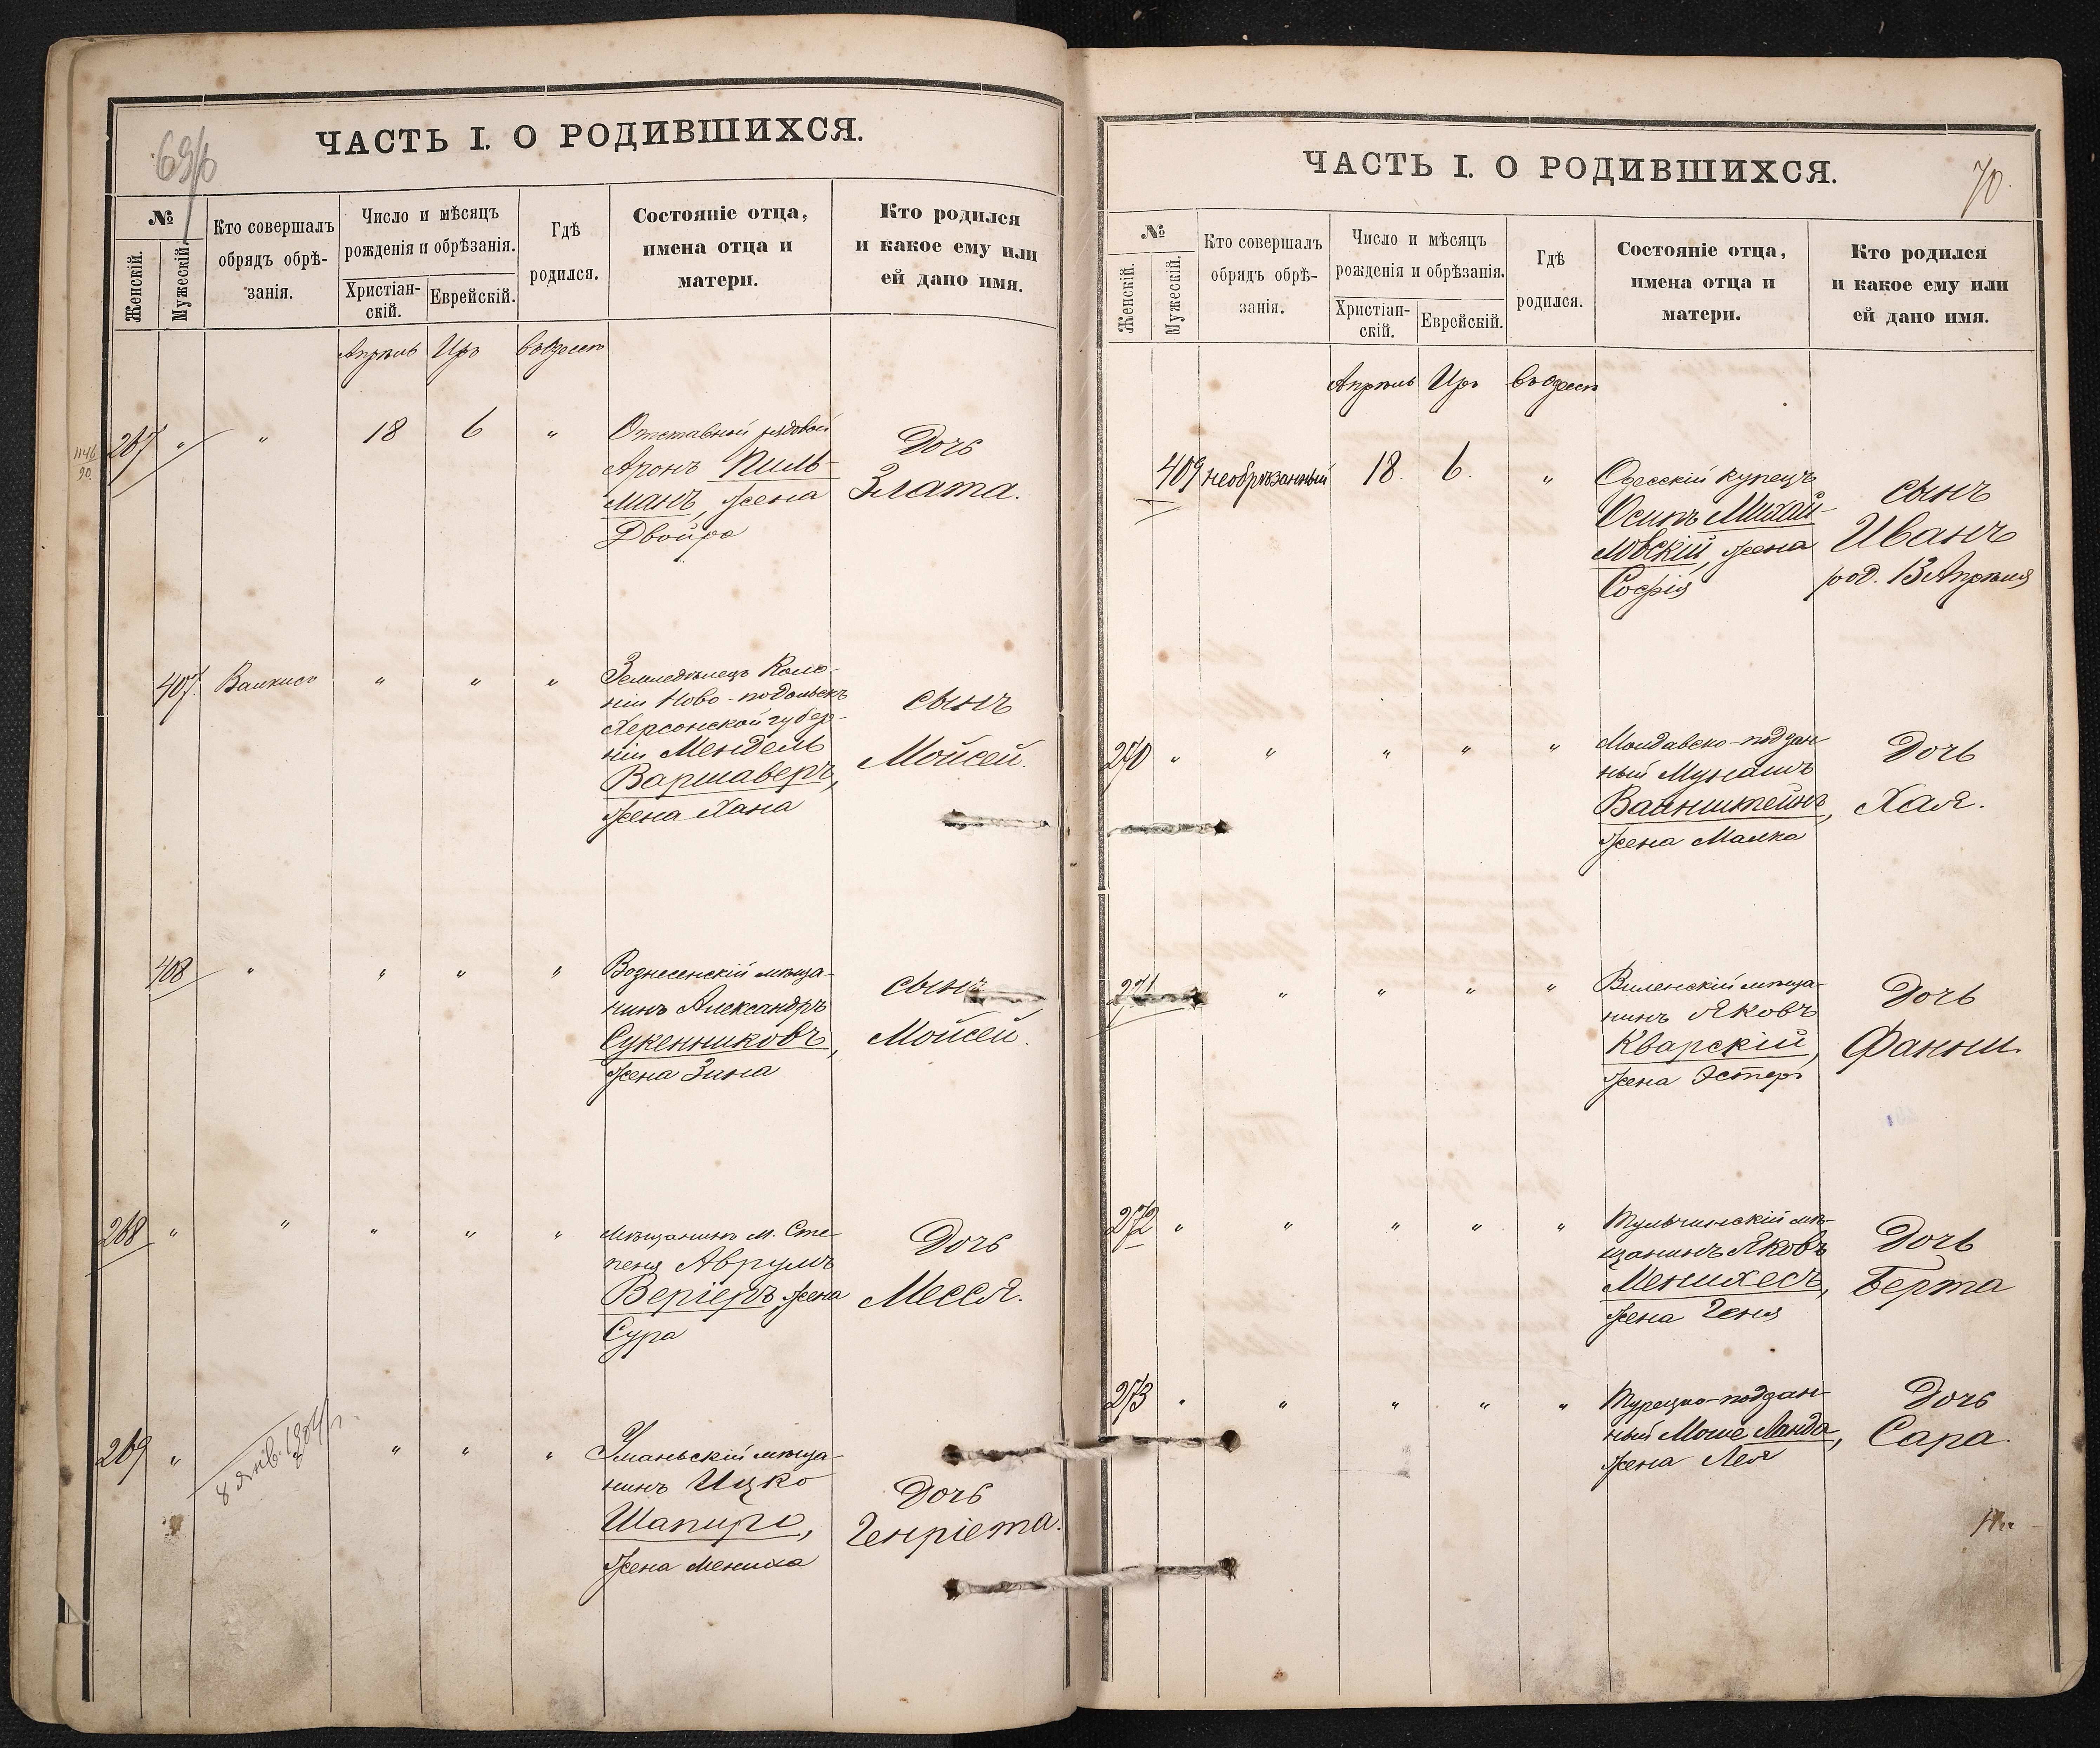 69/б
ЧАСТЬ I. О РОДИВШИХСЯ.
№
Женскій.
Мужескій.
Кто совершалъ
обрядъ обрѣ-
занія.
Число и мѣсяцъ
рожденія и обрѣзанія.
Христіан-
скій.
Еврейскій.
Гдѣ
родился.
Состояніе отца,
имена отца и
матери.
Кто родился
и какое ему или
ей дано имя.
Апрѣль Иръ въ Одессѣ
1146
90
267 " " 18 6 "
Отставной рядовой
Аронъ Пиль-
манъ, жена
Двойра
Дочь
Злата.
407. " " "
Земледѣлецъ Коло-
ніи Ново-подольскъ
Херсонской губер-
ніи Мендель
Варшаверъ,
жена Хана
сынъ
Мойсей.
408 " " " "
Вознесенскій мѣща-
нинъ Александръ
Сукенниковъ,
жена Зина
сынъ
Мойсей.
268 " " " " "
Мѣщанинъ м. Сте-
пеня Аврумъ
Веріеръ, жена
Сура
Дочь
Месся.
269 " " " "
8 янв. 1904 г.
Уманьскій мѣща-
нинъ Ицко
Шапиро,
жена Мениха
Дочь
Генріета.
ЧАСТЬ I. О РОДИВШИХСЯ.
70.
№
Женскій.
Мужескій.
Кто совершалъ
обрядъ обрѣ-
занія.
Число и мѣсяцъ
рожденія и обрѣзанія.
Христіан-
скій.
Еврейскій.
Гдѣ
родился.
Состояніе отца,
имена отца и
матери.
Кто родился
и какое ему или
ей дано имя.
Апрѣль Иръ въ Одессѣ
409 необрѣзанный 18. 6. "
Одесскій купецъ
Осипъ Михай-
ловскій, жена
Софія
сынъ
Иванъ
род. 13 Апрѣля
270 " " " " "
Молдавско-поддан-
ный Мунашъ
Ванштейнъ,
жена Малка
Дочь
Хая.
271 " " " "
Виленскій мѣща-
нинъ Яковъ
Кварскій,
жена Эстеръ
Дочь
Фанни.
272 " " " " "
Тульчинскій мѣ-
щанинъ Яковъ
Менихесъ,
жена Геня
Дочь
Берта
273 " " " " "
Турецко-поддан-
ный Моше Ланда,
жена Лея
Дочь
Сара.